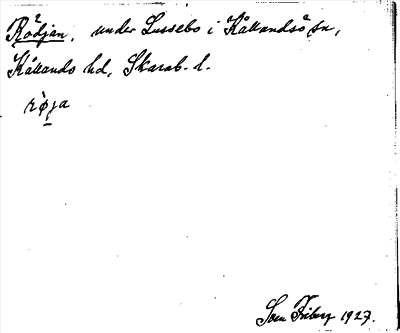 Rödjan, under Lussebo i Kållandsö sn,
Kållands hd, Skarab. l.
rø̀ja
Sven Friberg 1927.